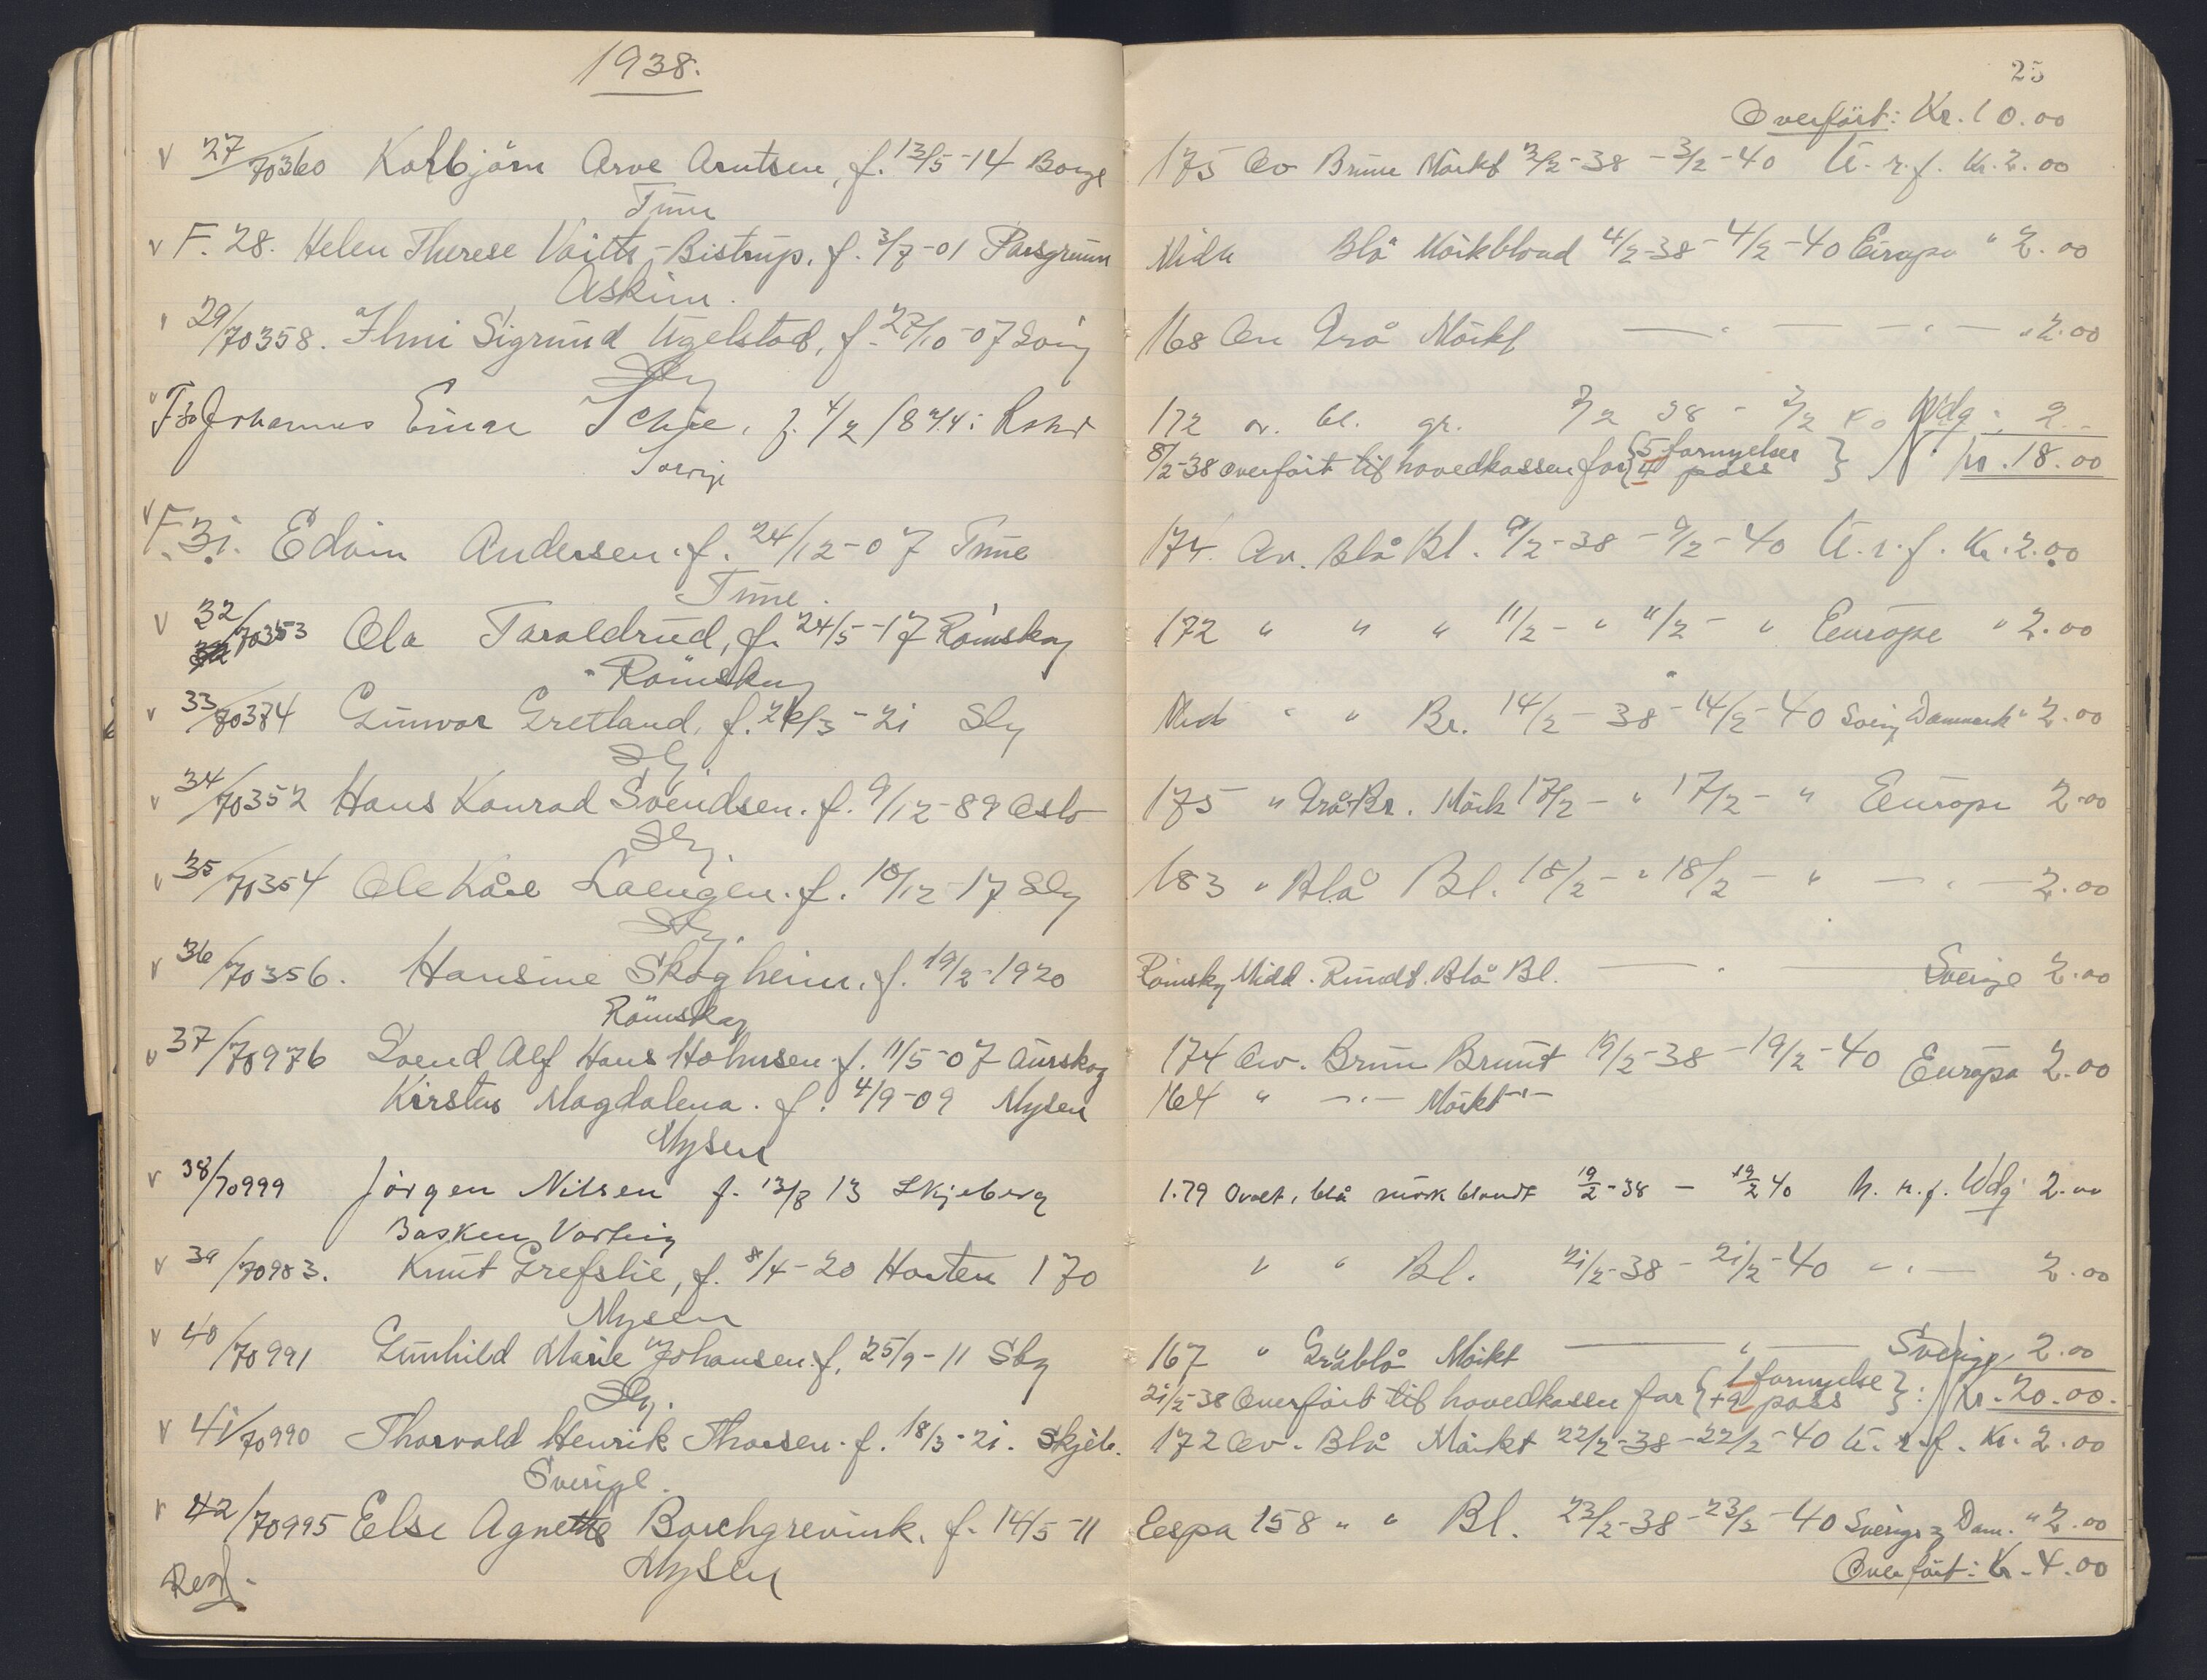 1938.
V 27/70360 Kolbjörn Arve Arntsen, f. 13/5-14 Borge
Tune
V F. 28. Helen Therese Voitts-Bistrup. f. 3/7-01 Porsgrunn
Askim.
" 29/70358. Ilmi Sigrund Ugelstad, f. 27/10-07
Sbg
F 30 Johannes Einar Schie. f. 4/2 1874 i
Sverige
V F. 31. Edvin Andersen. f. 24/12-07 Tune
Tune.
V 32/70353 Ola Taraldrud, f. 24/5-17 Römskog
Römskog
V 33/70374 Gunvor Gretland, f. 3-21 Sbg
Sbg.
V 34/70352 Hans Konrad Svendsen. f. 9/12-89 Oslo
Sbg.
V 35/70354 Ole Kåre Laengen. f. 10/12-17 Sbg
Sbg.
V 36/70356. Hansine Skogheim. f. 19/2-1920
Römskog
V 37/70976 Svend Alf Hans Holmsen. f. 11/5-07 Aurskog
Kirsten Magdalena. f. 4/9-09 Mysen
Mysen
V 38/70999 Jörgen Nilsen f. 13/8 13 Skjeberg
Varteig
V 39/70983. Knut Grefslie, f. 8/4-20 Horten 170
Mysen
V 40/70991 Gunhild Marie Johansen. f. 25/9-11 Sbg
Sbg.
V 41/70990 Thorvald Henrik Thorsen. f. 18/3-21. Skjeb.
Sverige.
V 42/70995 Else Agnethe Borchgrevink. f. 14/5-11
Mysen
25
Overfört: Kr. 10.00
175 Ov Brune Mörkt 3/2-38 - 3/2-40 U. r. f. Kr. 2.00
Midd Blå Mörkblond 4/2-38 - 4/2-40 Europa " 2.00
168 Ov Grå Mörkt — " — — " — " 2.00
172 ov. bl. gr. 7/2 38 - 7/2 40 Wdg: 2.-
8/2-38 overfört til hovedkassen for {5 fornyelser 4 pass} Kr. 18.00
174. Ov. Blå Bl. 9/2-38 - 9/2-40 U. r. f. Kr. 2.00
172 " " " 11/2 - " 11/2 - " Europa " 2.00
Midd " " Br. 14/2-38 - 14/2-40 Sverig Danmark " 2.00
175 " Grå-Br. Mörk 17/2 - " 17/2 - " Europa 2.00
183 " Blå Bl. 18/2 - " 18/2 - " — " — 2.00
Römskg Midd. Rundt. Blå Bl. — " — Sverige 2.00
174 Ov. Brun Brunt 19/2-38 - 19/2-40 Europa 2.00
164 " — " — Mörkt — " —
1.79 Ovalt, blå mörk blondt 19/2-38 - 19/2 40 U. r. f. Wdg 2.00
" " Bl. 21/2-38 - 21/2-40 — " — 2.00
167 " Gråblå Mörkt — " — Sverige 2.00
21/2-38 Overfört til hovedkassen for {1 fornyelse + 9 pass}: Kr. 20.00.
172 Ov. Blå Mörkt 22/2-38 - 22/2-40 U. r. f. Kr. 2.00
Eespa 158 " " Bl. 23/2-38 - 23/2-40 Sverige og Dam. " 2.00
Overfört: Kr. 4.00